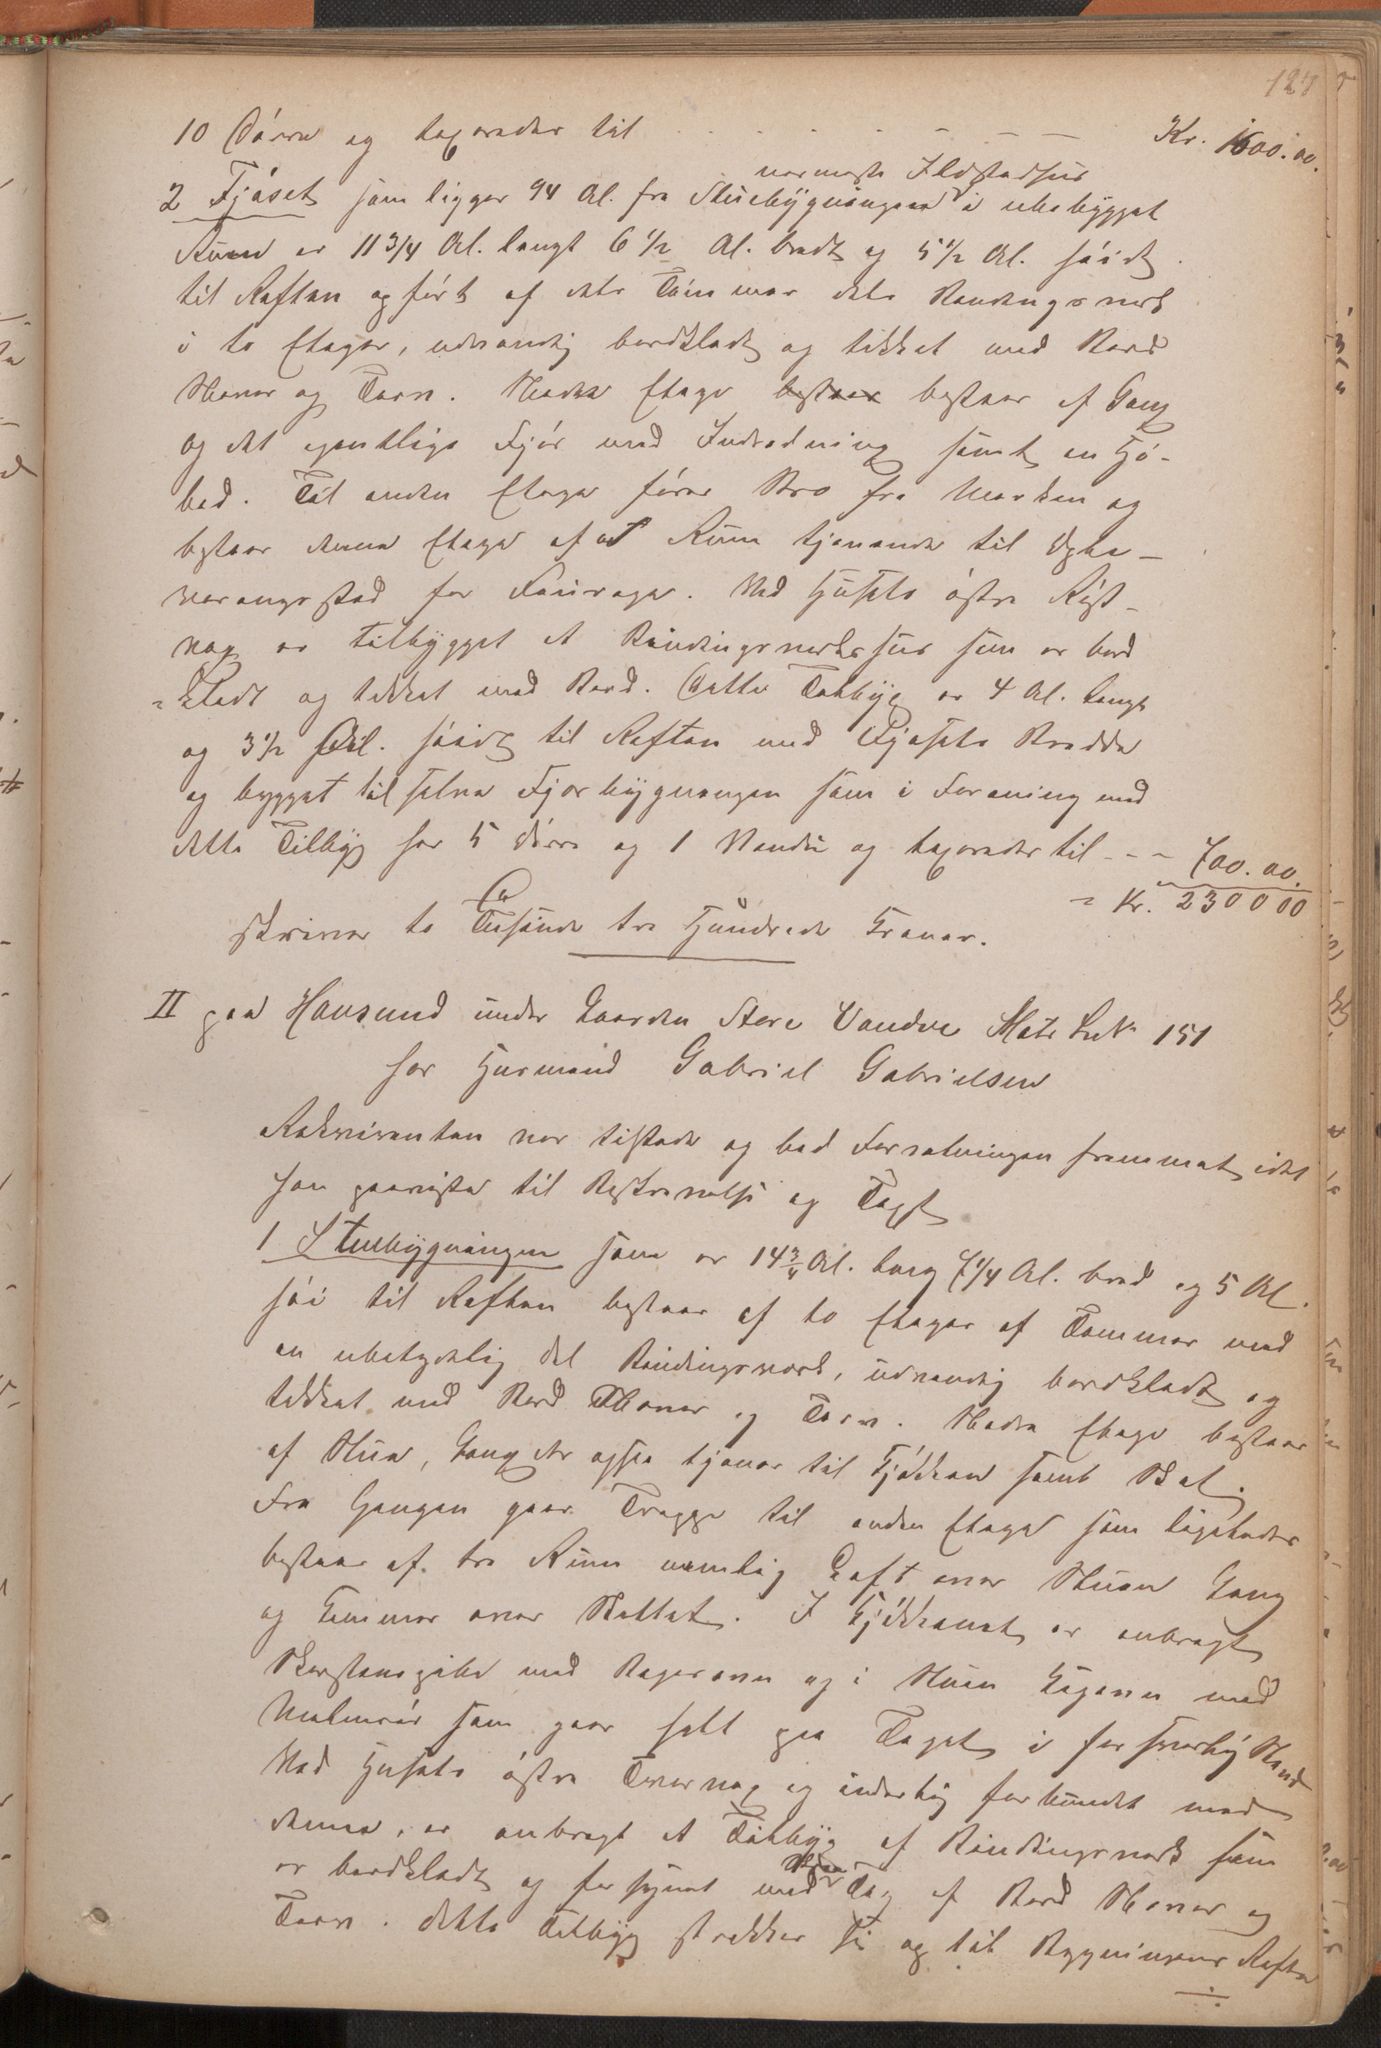 127
10 Dörre og taxeredes til - - - - - - Kr. 1600.00.
nærmeste Ildstedhus
2 Fjöset som ligger 94 Al. fra Stuebygningen i ubebygget
Rum er 11 3/4 Al. langt 6 1/2 Al. bredt og 5 1/2 Al. höidt
til Raften opfört af dels Tömmer dels Bindingsverk
i to Etager, udvendig bordklædt og tækket med Bord
Næver og Törv. Nedre Etage bestaar bestaar af Gang
og det egentlige Fjös med Indredning samt en Hö-
bod. Til anden Etage förer Bro fra Marken og
bestaar denne Etage af et Rum tjenende til Opbe-
varingsstad for Fourage. Ved Husets östre Röst-
væg er tilbygget et Bindingsverkshus som er bord
=klædt og tækket med Bord. Dette Tilbyg er 4 Al. langt
og 3 1/2 Al. höidt til Raften med Fjösets Bredde
og bygget til selve Fjösbygningen som i Forening med
dette Tilbyg har 5 Dörre og 1 Vindu og taxeredes til - - - 700.00.
= Kr. 230000
skriver to Tusinde tre Hundrede Kroner.
II paa Hansund under Gaarden Store Vandve Matr Lnr 151
for Husmand Gabriel Gabrielsen
Rekvirenten var tilstede og bad Forretningen fremmet, idet
han paaviste til Beskrivelse og Taxt
1 Stuebygningen som er 14 3/4 Al. lang 7 1/4 Al. bred og 5 Al.
höi til Raften bestaar af to Etager af Tømmer med
en ubetydelig del Bindingsverk, udvendig bordklædt og
tækket med Bord Næver og Törv. Nedre Etage bestaar
af Stue, Gang der ogsaa tjener til Kjökken samt Kot.
Fra Gangen gaar Trappe til anden Etage som ligeledes
bestaar af tre Rum nemlig Loft over Stuen Gang
og Kammer over Kottet. I Kjökkenet er anbragt
Skorstenspibe med Bagerovn og i Stuen Kogeovn med
Malmrör som gaar helt paa Taget i forsvarlig Stand
Ved Husets östre Tvervæg og inderlig forbundet med
denne, er anbragt et Tilbyg af Bindingsverk som
er bordklædt og forsynet med Tag af Bord Næver og
Törv. Dette Tilbyg strækker sig op til Bygningens Raften